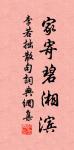 家寄碧湘滨
李若拙散句词典网集